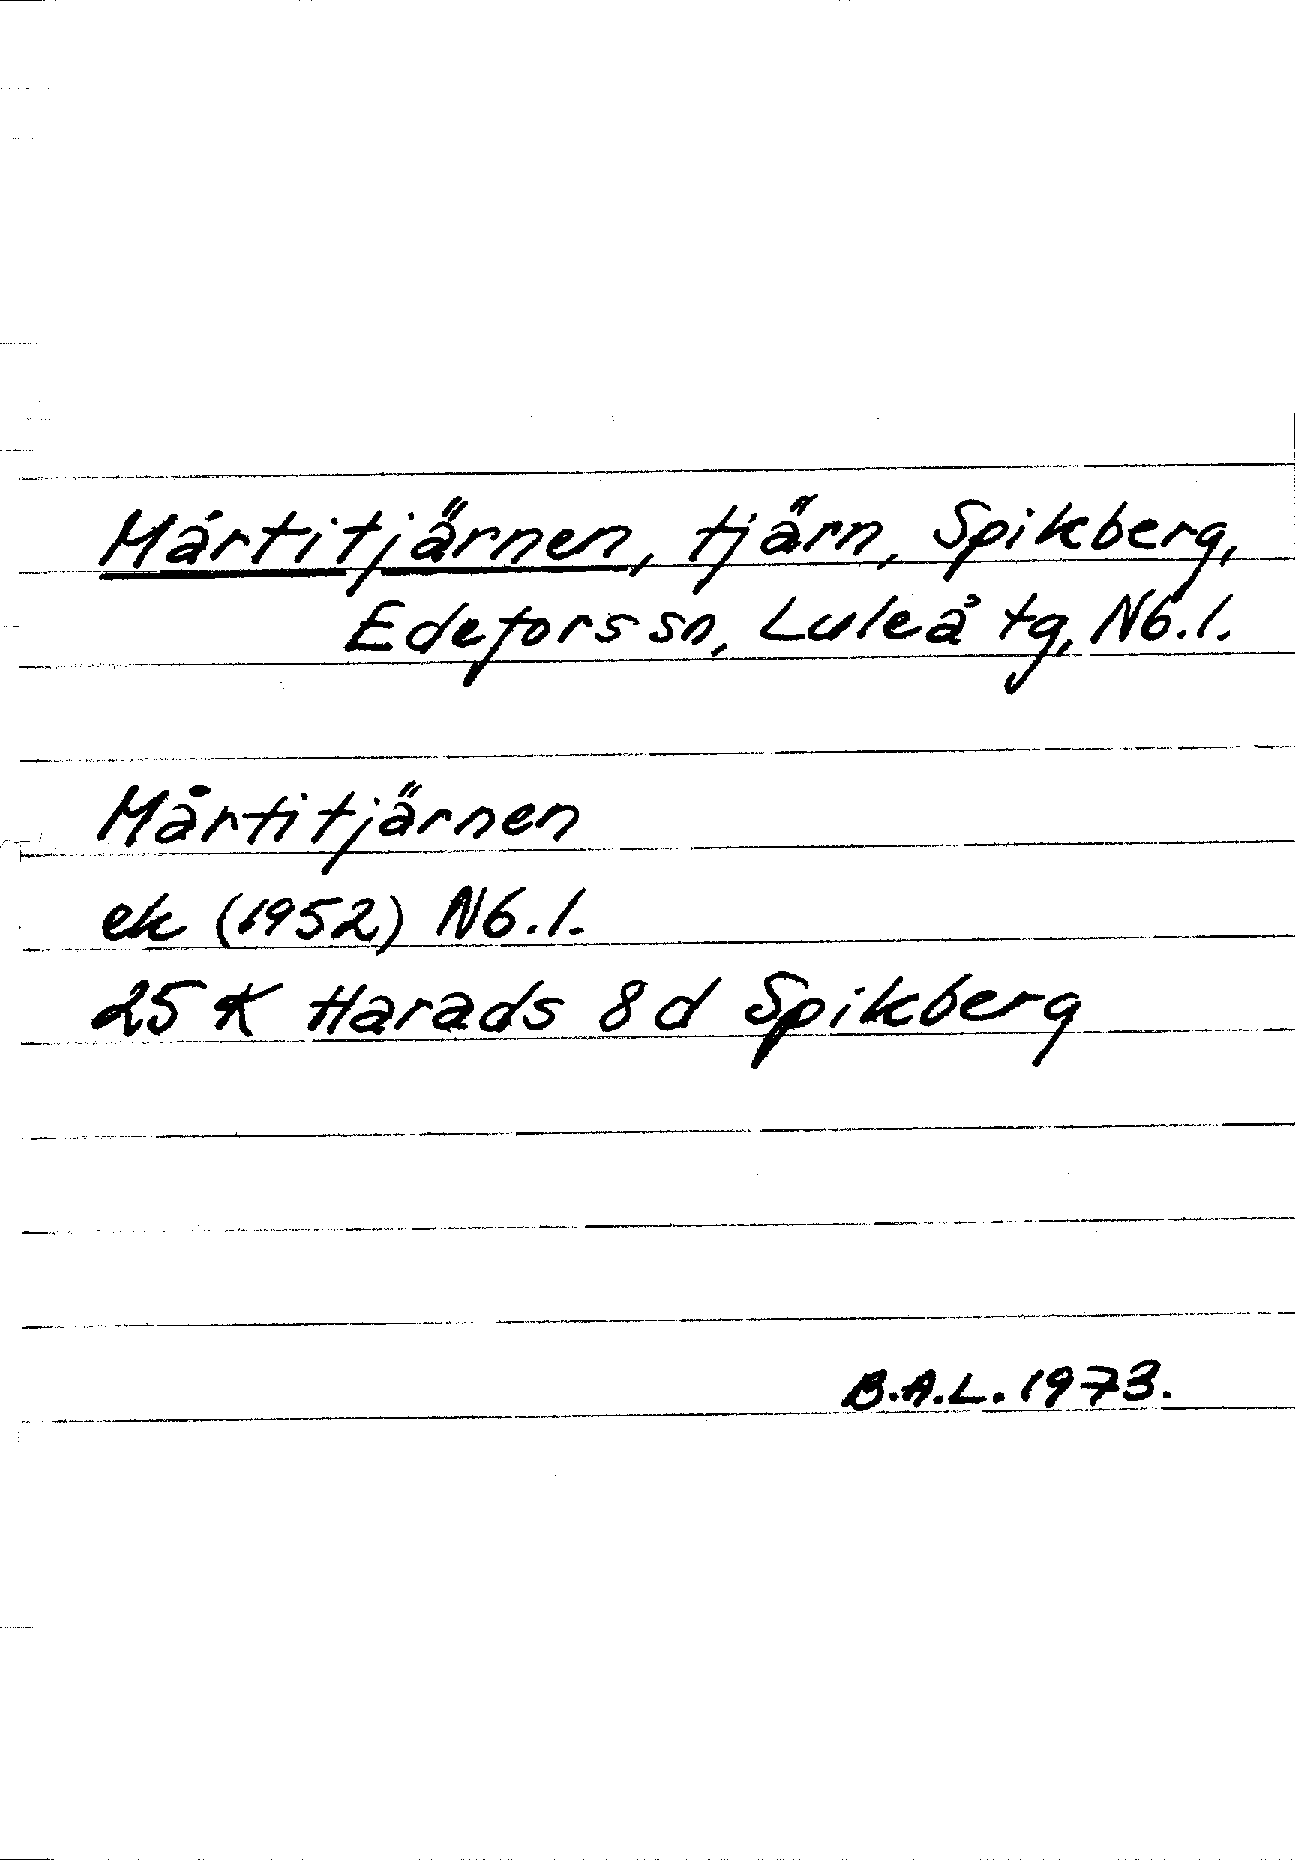 Mårtitjärnen, tjärn, Spikberg,
Edefors sn, Luleå tg, Nb.l.
Mårtitjärnen
ek (1952) Nb.l.
25 K Harads 8d Spikberg
B.A.L. 1973.